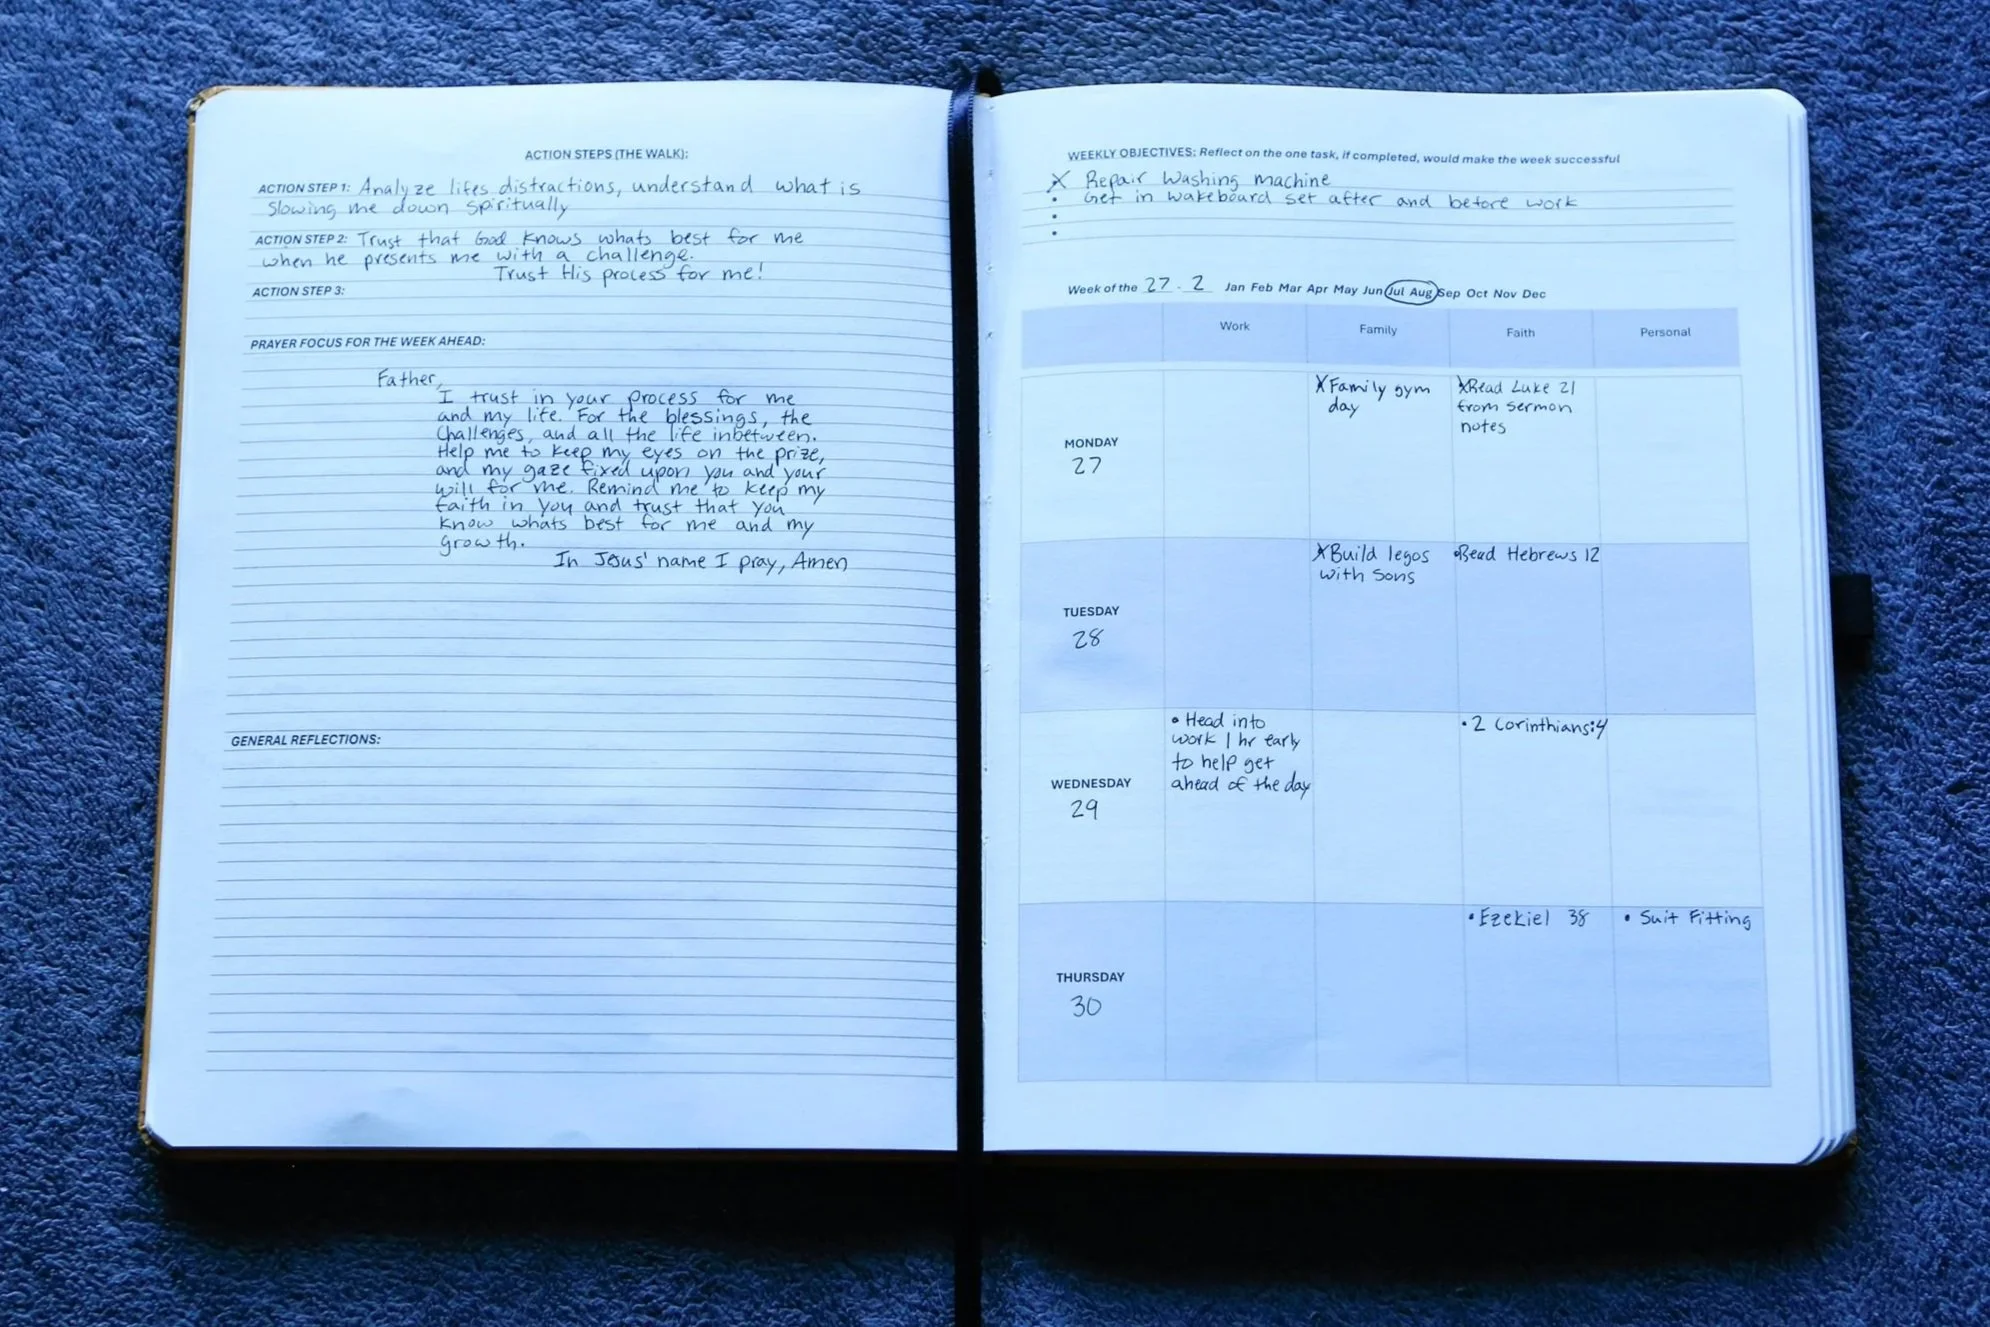 ACTION STEPS (THE WALK):
ACTION STEP 1: Analyze lifes distractions, understand what is
slowing me down spiritually
ACTION STEP 2: Trust that God knows whats best for me
when he presents me with a challenge.
Trust His process for me!
ACTION STEP 3:
PRAYER FOCUS FOR THE WEEK AHEAD:
Father,
I trust in your process for me
and my life. For the blessings, the
challenges, and all the life inbetween.
Help me to keep my eyes on the prize,
and my gaze fixed upon you and your
will for me. Remind me to keep my
faith in you and trust that you
know whats best for me and my
growth.
In Jesus' name I pray, Amen
GENERAL REFLECTIONS:
WEEKLY OBJECTIVES: Reflect on the one task, if completed, would make the week successful
X Repair washing machine
• Get in wakeboard set after and before work
•
•
Week of the 27 - 2 Jan Feb Mar Apr May Jun Jul Aug Sep Oct Nov Dec
Work Family Faith Personal
MONDAY
27
X Family gym
day
X Read Luke 21
from sermon
notes
TUESDAY
28
X Build legos
with sons
• Read Hebrews 12
WEDNESDAY
29
• Head into
work 1 hr early
to help get
ahead of the day
• 2 Corinthians:4
THURSDAY
30
• Ezekiel 38
• Suit Fitting